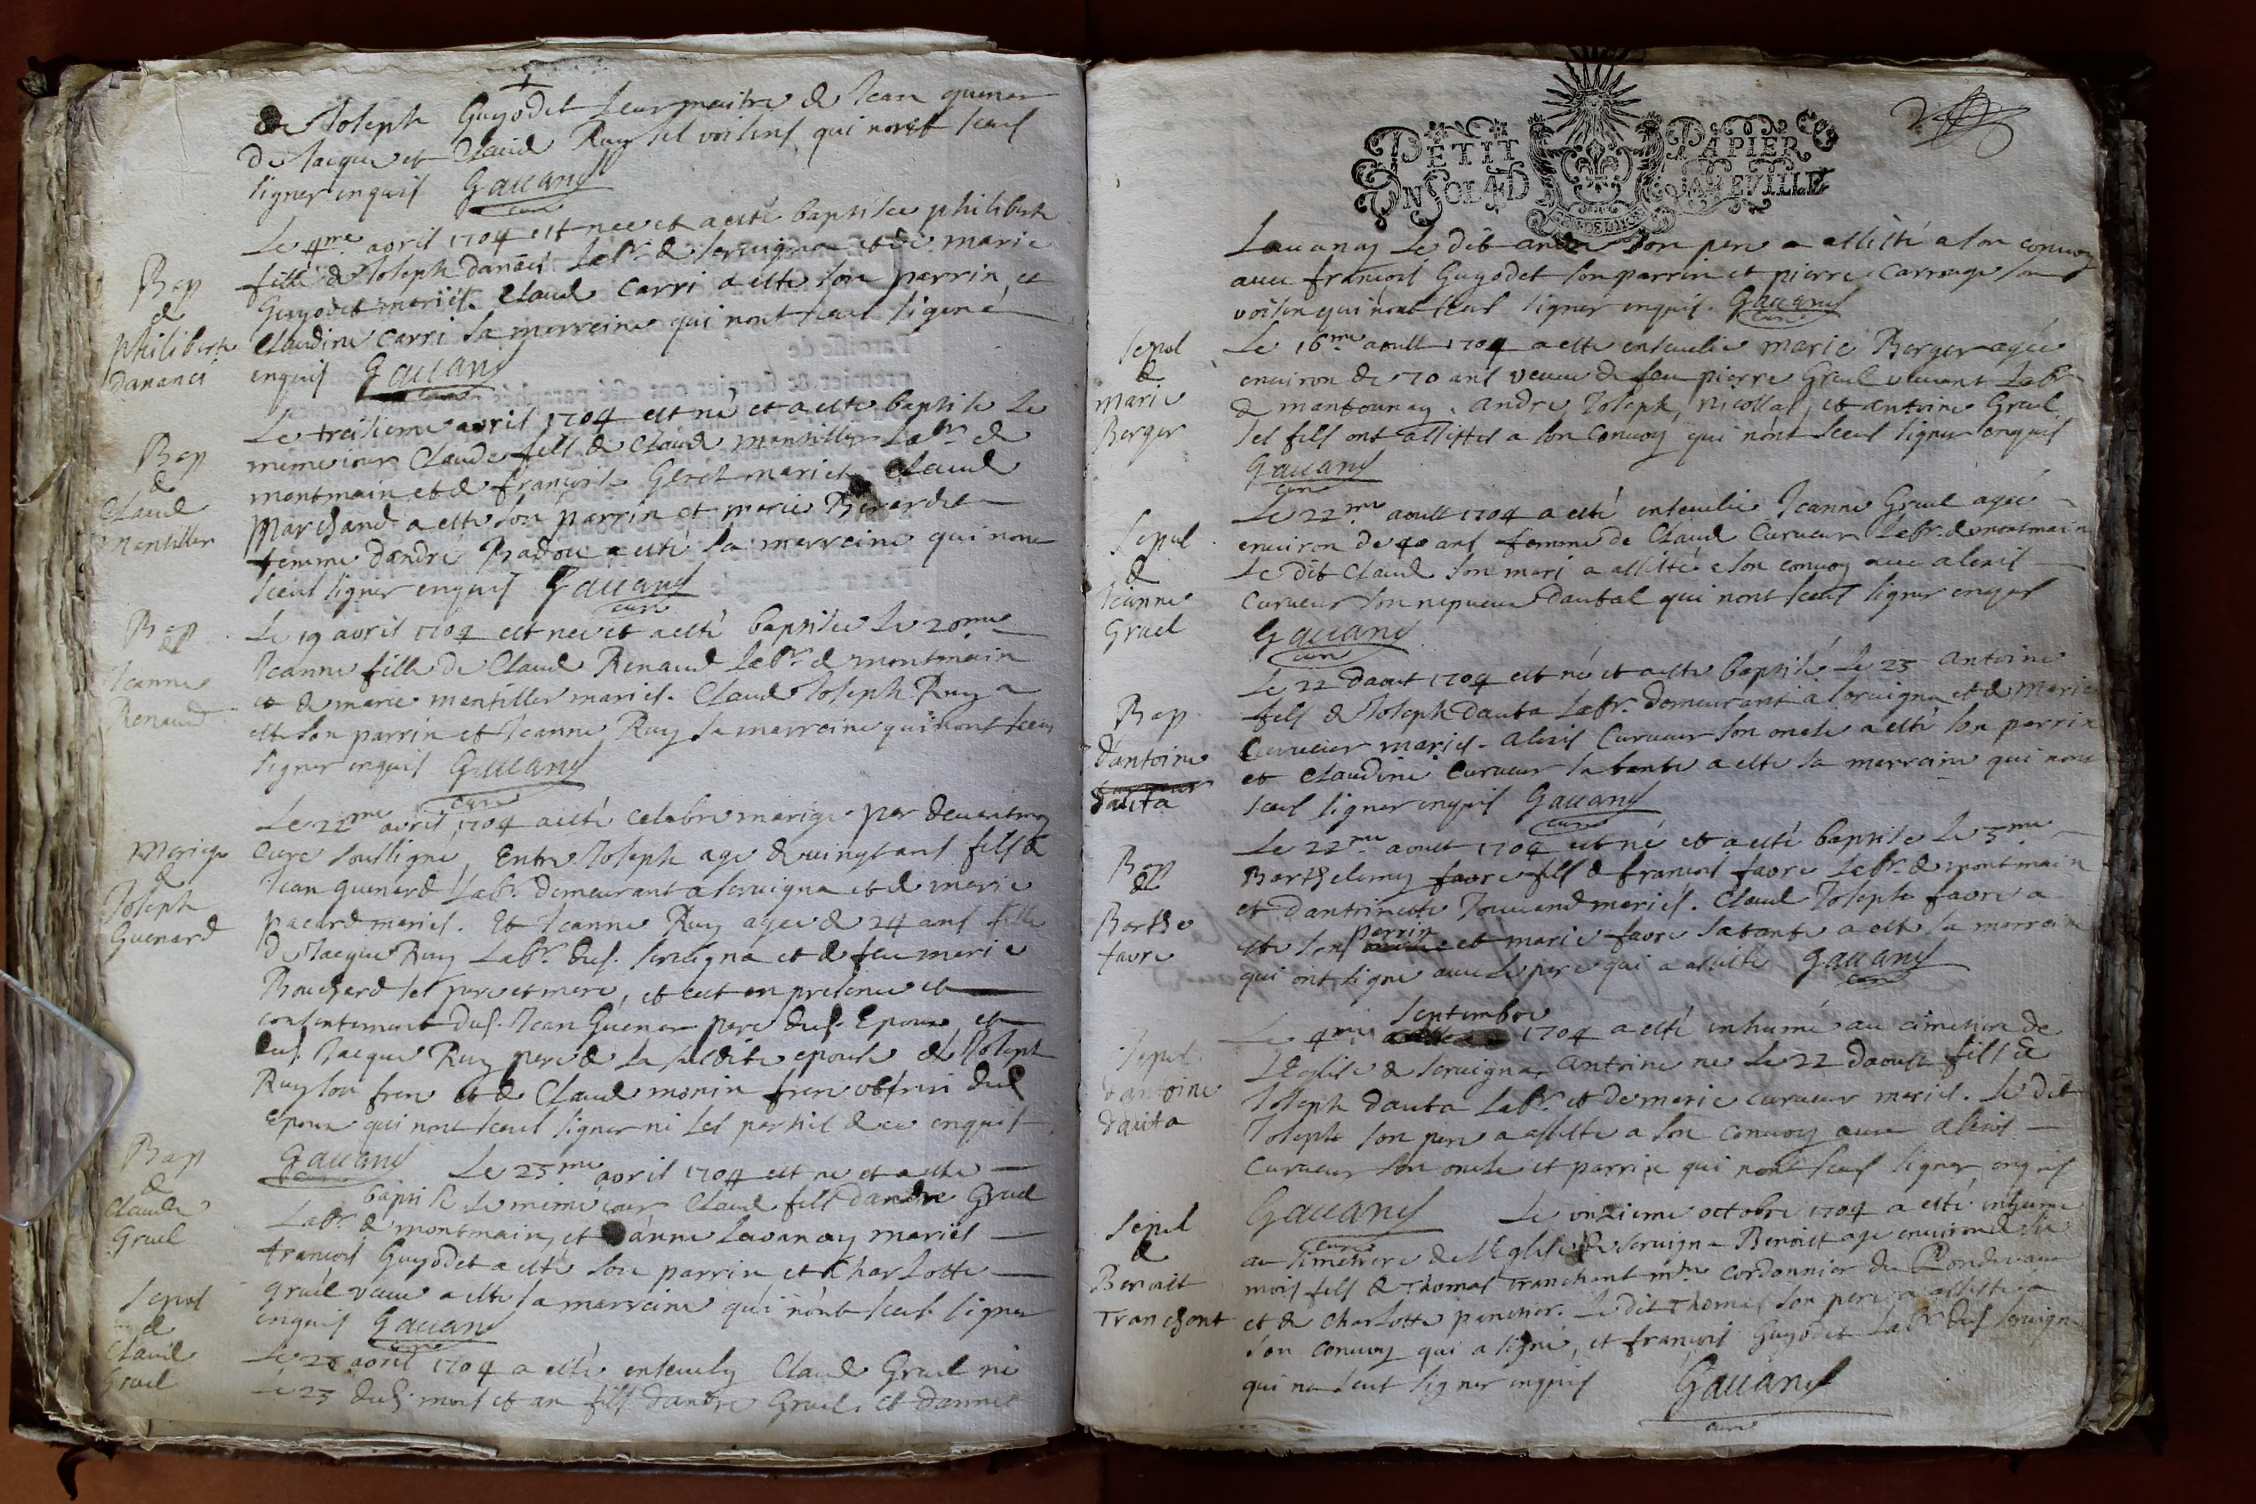 de Joseph Guyodet leur maitre de Jean quenar
de Jacque et Claud Ruy voisins qui nont sceu
signer enquis Gauand
curé
Le 4me avril 1704 est nee et a esté baptisée philiberte
fille de Joseph dananci Labr. de servigna et de marie
Guyodet mariés. Claud Carri a esté son parrin et
Claudine Carri sa marraine qui nont sceu signé
enquis Gauand
curé
Bap
de
philiberte
dananci
Le treisieme avril 1704 est né et a esté baptisé Le
meme jour Claude fils de Claud mantiller Labr. de
montmain et de françoise mariés Claud
marchand a esté son parrin et marie Berardet
femme dandré Badou a esté sa marraine qui nont
sceu signer enquis Gauand
curé
Bap
de
Claud
mantiller
Le 19 avril 1704 est nee et a esté baptisée Le 20me
Jeanne fille de Claud Renaud Labr. de montmain
et de marie mantiller mariés. Claud Joseph Ruy a
esté son parrin et Jeanne Ruy sa marraine qui nont sceu
signer enquis Gauand
curé
Bap
de
Jeanne
Renaud
Le 22me avril 1704 a esté celebré mariage par devant moy
Curé soussigné, Entre Joseph agé de vingt ans fils de
Jean Guenard Labr. demeurant a servigna et de marie
pacard mariés. Et Jeanne Ruy agée de 24 ans fille
de Jacque Ruy Labr. dud. servigna et de feu marie
Bouchard ses pere et mere, et cest en presence et
consentement dud. Jean Guenar pere dud. Epoux et
dud. Jacque Ruy pere de la susdite epouse de Joseph
Ruy son frere et de Claud monin frere uterin dud.
Epoux qui nont sceu signer ni les parties de ce enquis
Gauand
curé
Mariage
de
Joseph
Guenard
Le 25me avril 1704 est né et a esté
baptisé le meme jour Claud fils dandre Gruel
Labr. de montmain, et danne Lavanay mariés
françois Guyodet a esté son parrin et Charlotte
Gruel veuve a esté sa marraine qui nont sceu signer
enquis Gauand
curé
Bap
de
Claude
Gruel
Le 28 avril 1704 a esté ensevely Claud Gruel né
Le 25 dud. mois et an fils dandre Gruel, et danne
Sepul
de
Claud
Gruel
PETIT PAPIER
UN SOL 4 D LA FEVILLE
Lavanay Le dit andre son pere a assisté a son convoy
avec françois Guyodet son parrin et pierre Carrouge son
voisin qui nont sceu signer enquis. Gauand
curé
Le 16me aoust 1704 a esté ensevelie marie Berger agée
environ de 70 ans veuve de feu pierre Gruel vivant Labr
de mantounay. andre, Joseph, nicollas, et antoine Gruel
ses fils ont assistés a son convoy qui nont sceu signer enquis
Gauand
curé
Sepul
de
Marie
Berger
Le 22me aoust 1704 a esté ensevelie Jeanne Gruel agée
environ de 40 ans femme de Claud Curveur Labr. de montmain
Le dit Claud son mari a assisté a son convoy avec alexis
Curveur son nepveux qui nont sceu signer enquis
Gauand
curé
Sepul
de
Jeanne
Gruel
Le 22 daout 1704 est né et a esté baptisé Le 25 antoine
fils de Joseph dauta Labr. demeurant a servigna et de marie
Curveur mariés. alexis Curveur son oncle a esté son parrin
et Claudine Curveur sa tante a esté sa marraine qui nont
sceu signer enquis Gauand
curé
Bap
dantoine
dauta
Le 22me aoust 1704 est né et a esté baptisé le 5me
Barthelemy favre fils de françois favre Labr. de montmain
et dantoinette Jouvand mariés. Claud Joseph favre a
esté son parrin et marie favre sa tante a esté sa marraine
qui ont signé avec le pere qui a assisté Gauand
curé
Bap
de
Barthe
favre
Le 4me septembre 1704 a esté inhumé au cimetiere de
LEglise de servigna antoine né Le 22 daoust fils de
Joseph dauta Labr. et de marie curveur mariés. Le dit
Joseph son pere a assisté a son convoy avec alexis
Curveur son oncle et parrin qui nont sceu signer enquis
Gauand
curé
Sepul.
dantoine
dauta
Le onzieme octobre 1704 a esté inhumé
au simetiere de lEglise de servigna Benoist agé environ de six
mois fils de Thomas Tranchant mtre cordonnier du
et de Charlotte penetier. Le dit Thomas son pere a assisté a
son convoy qui a signé, et françois Guyodet Labr dud servigna
qui na sceut signer enquis Gauand
curé
Sepul
de
Benoist
Tranchant